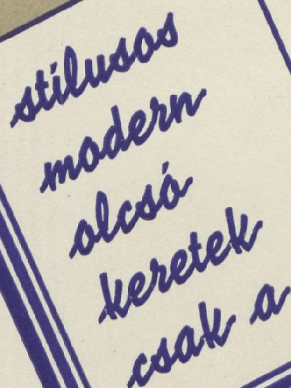 stílusos
modern
olcsó
keretek
csak a